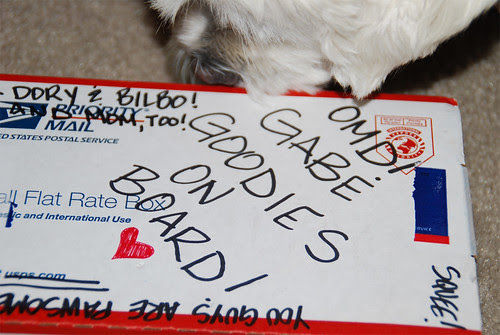 DORY & BILBO!
AND BABM, TOO!
PRIORITY
MAIL
UNITED STATES POSTAL SERVICE
OMD!
GABE
GOODIES
ON
BOARD!
all Flat Rate Box
stic and International Use
usps.com
YOU GUYS ARE PAWSOME
SQUEE!